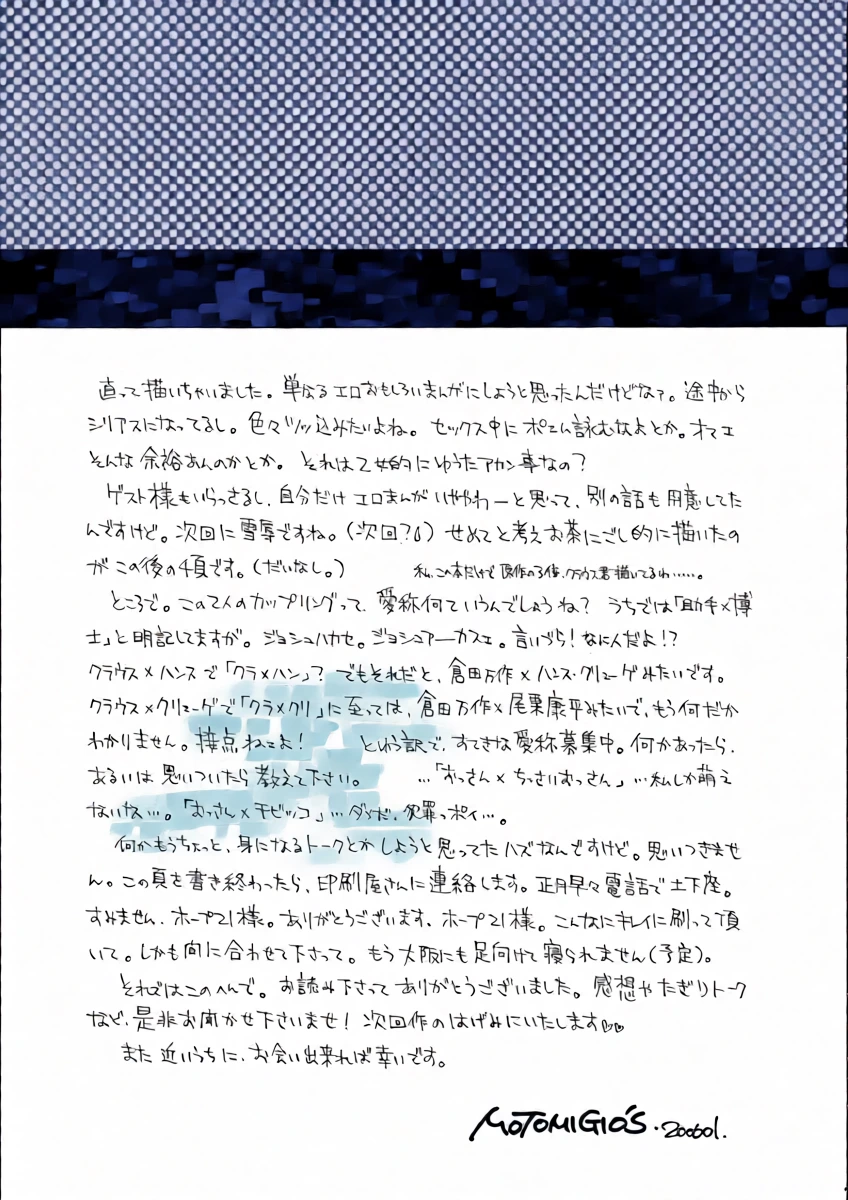 直って描いちゃいました。単なるエロおもしろいまんがにしようと思ったんだけどなァ。途中から
シリアスになってるし。色々ツッ込みたいよね。セックス中にポエム詠むなよとか。オマエ
そんな余裕あんのかとか。それは乙女的にゆうたアカン事なの?
ゲスト様もいらっさるし、自分だけエロまんがいややわーと思って、別の話も用意してた
んですけど。次回に雪辱ですね。(次回?!)せめてと考えお茶にごし的に描いたの
がこの後の4頁です。(だいなし。)
私、この本だけで原作の3倍、クラウス君描いてるわ……。
ところで。この2人のカップリングって、愛称何ていうんでしょうね? うちでは「助手×博
士」と明記してますが。ジョシュハカセ。ジョシュアーカスェ。言いづら!なに人だよ!?
クラウス×ハンスで「クラ×ハン」?でもそれだと、倉田万作×ハンス・クリューゲみたいです。
クラウス×クリューゲで「クラ×クリ」に至っては、倉田万作×尾栗康平みたいで、もう何だか
わかりません。接点ねーよ! という訳で、すてきな愛称募集中。何かあったら、
あるいは思いついたら教えて下さい。 …「おっさん×ちっさいおっさん」…私しか萌え
ないナ…。「おっさん×チビッコ」…ダメだ、犯罪っポイ…。
何かもうちょっと、身になるトークとかしようと思ってたハズなんですけど。思いつきませ
ん。この頁を書き終わったら、印刷屋さんに連絡します。正月早々電話で土下座。
すみません、ホープ21様。ありがとうございます、ホープ21様。こんなにキレイに刷って頂
いて。しかも間に合わせて下さって。もう大阪にも足向けて寝られません(予定)。
それではこのへんで。お読み下さってありがとうございました。感想やたぎりトーク
など、是非お聞かせ下さいませ!次回作のはげみにいたします♡♡
また近いうちに、お会い出来れば幸いです。
MOTOMIGIO'S・200601.